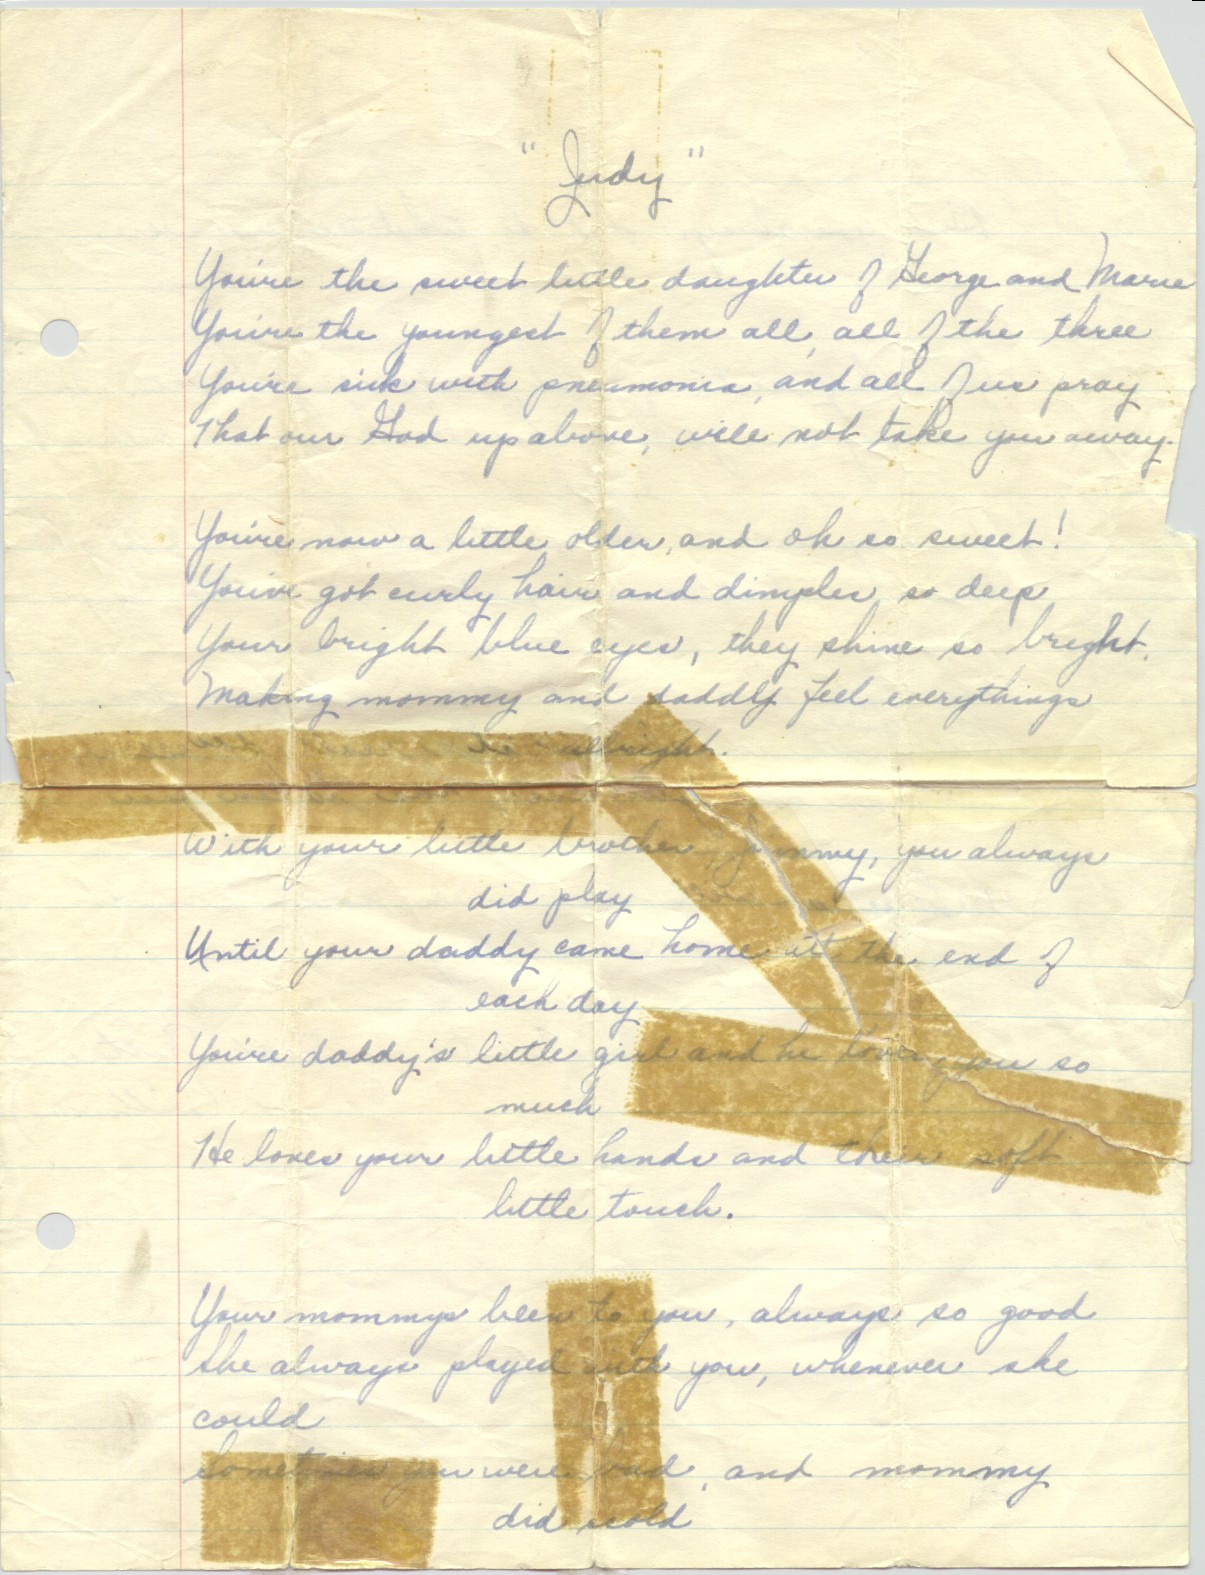 "Judy"
You're the sweet little daughter of George and Marie
You're the youngest of them all, all of the three
You're sick with pneumonia, and all of us pray
That our God up above, will not take you away.
You're now a little older, and oh so sweet!
You've got curly hair and dimples so deep
Your bright blue eyes, they shine so bright,
Making mommy and daddy feel everythings
allright.
With your little brother, Jimmy, you always
did play
Until your daddy came home at the end of
each day
You're daddy's little girl and he loves you so
much
He loves your little hands and their soft
little touch.
Your mommys been to you, always so good
She always played with you, whenever she
could
Sometimes you were bad, and mommy
did scold